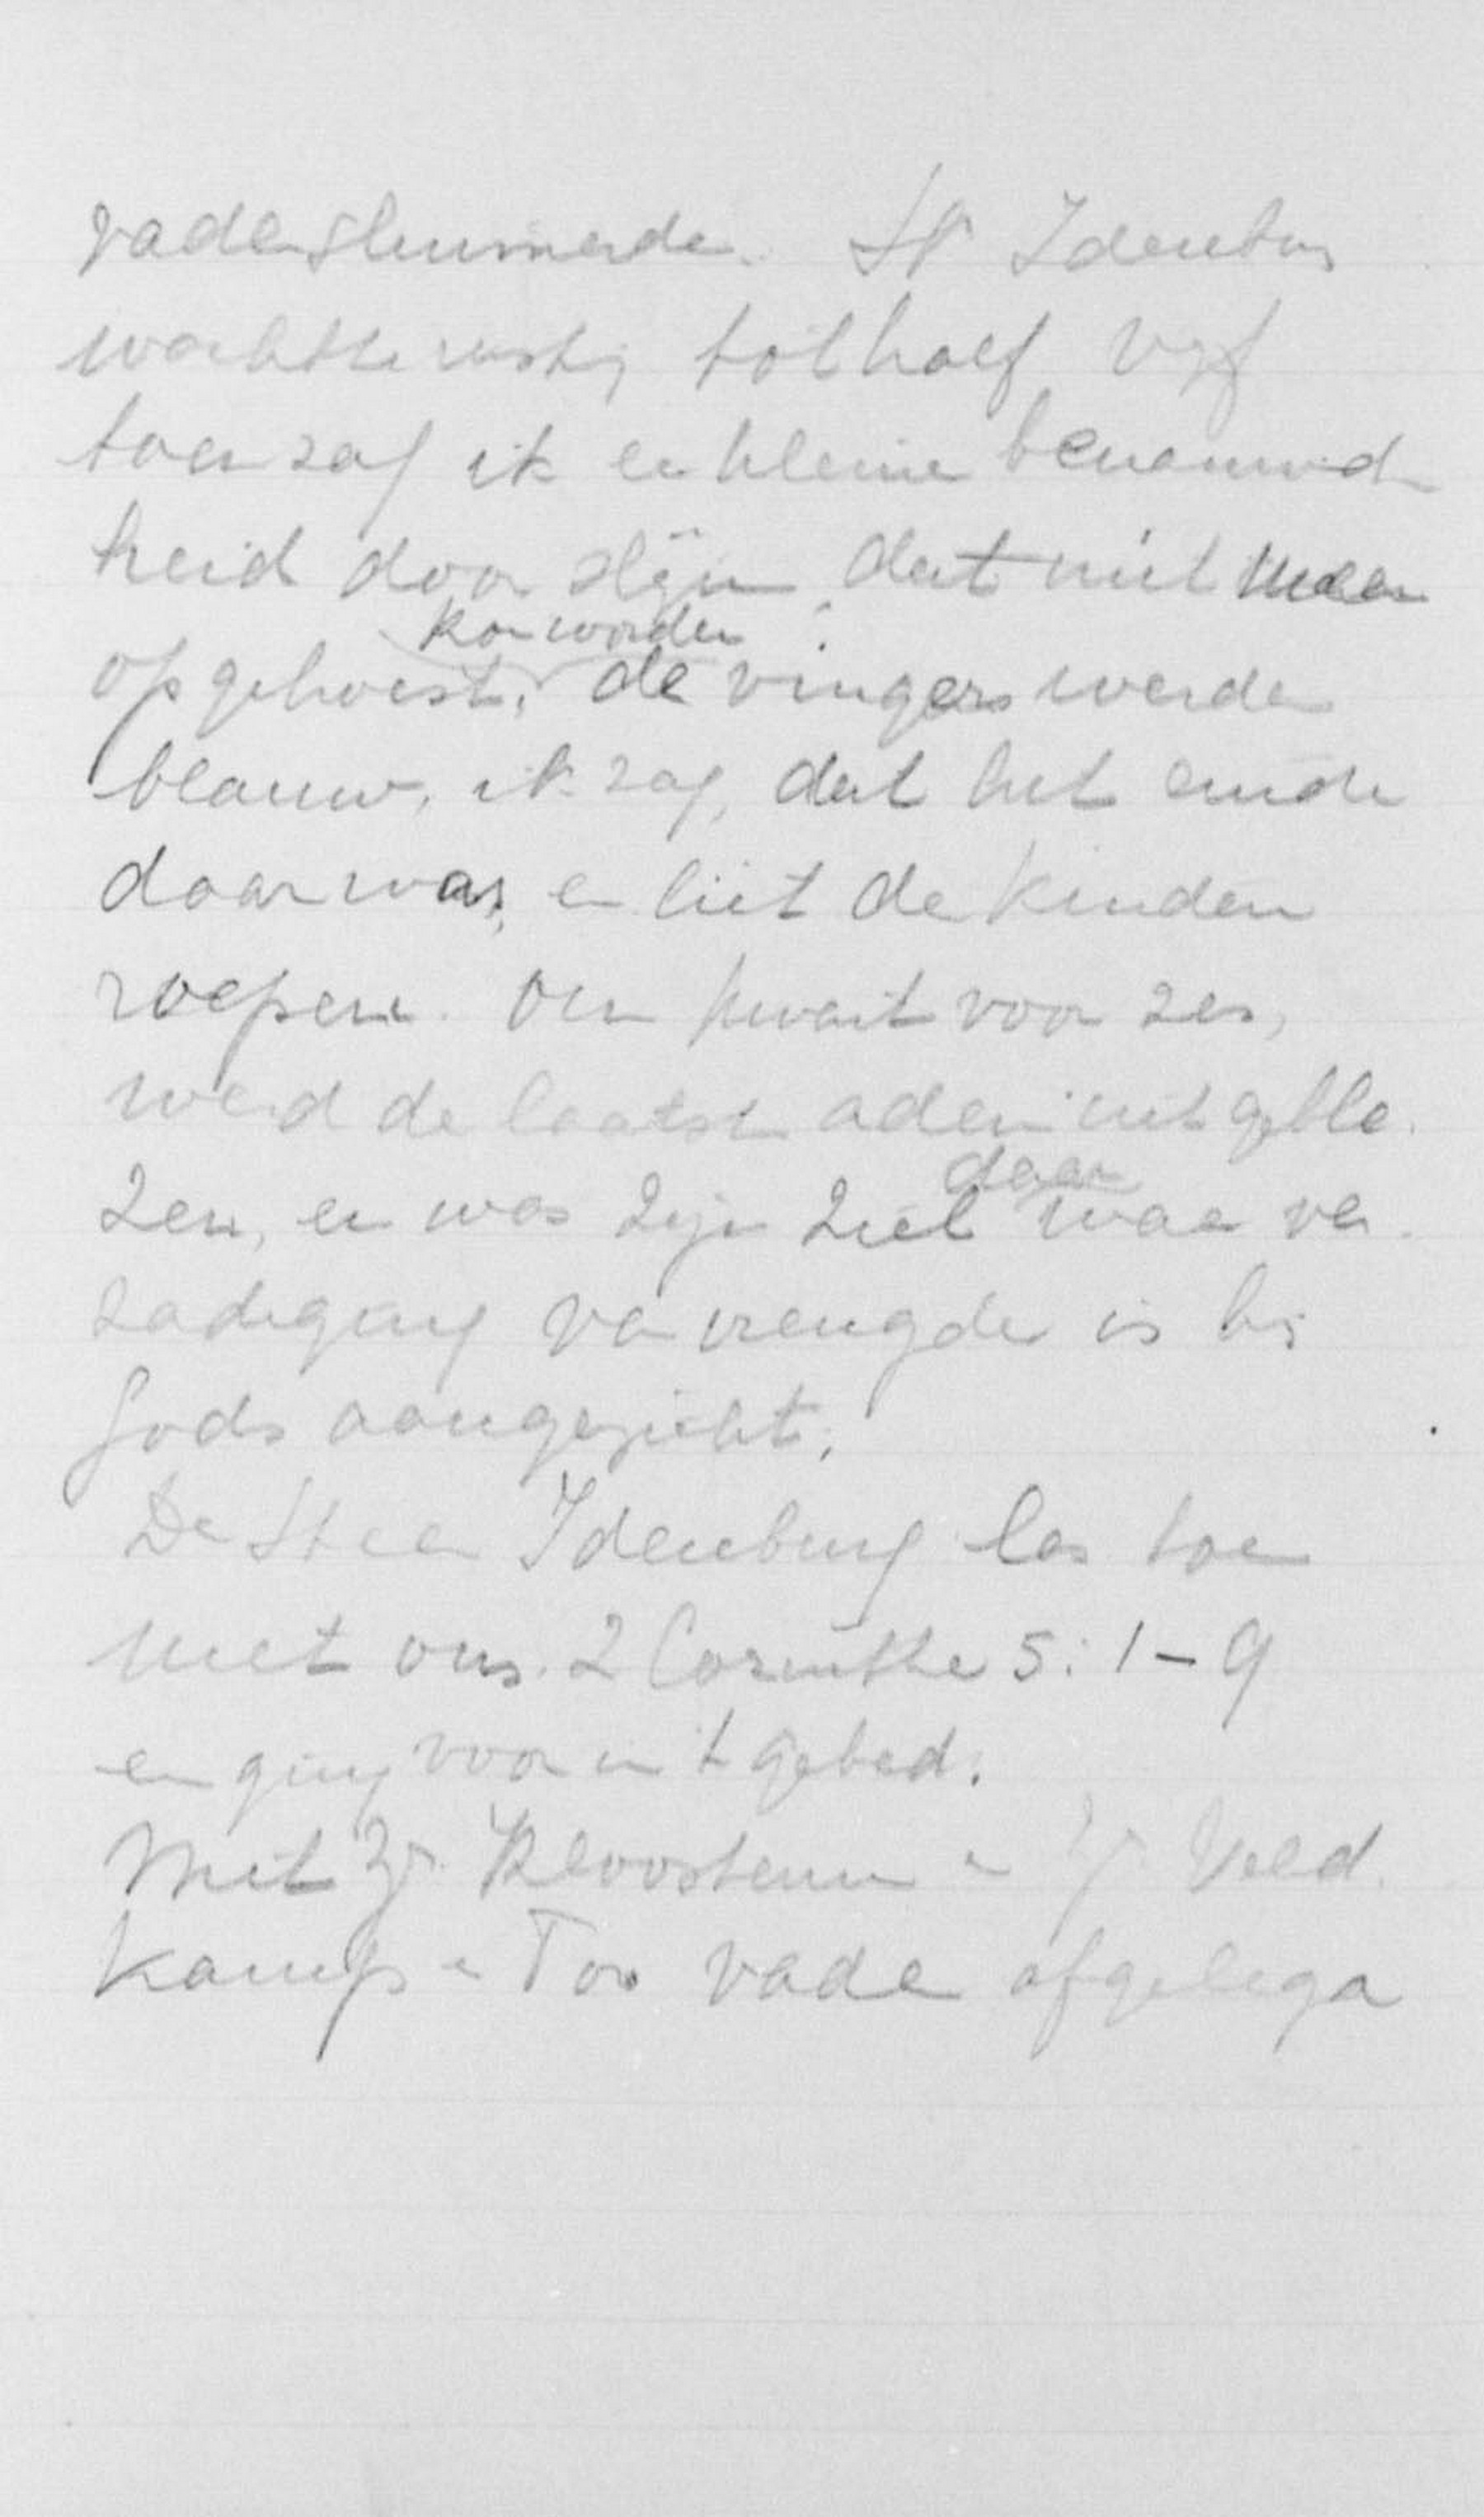 vader sluimerde. Hr Idenburg
wachtte rustig tot half vijf
toen zag ik en kleine benauwd
heid door slijm dat niet meer
kon worden
opgehoest, de vingers werden
blauw, ik zag, dat het einde
daar was, en liet de kinderen
roepen. Om kwart voor zes,
werd de laatste adem uitgebla
zen, en was zijn ziel waar ver
daar
zadiging van vreugde is bij
Gods aangezicht.
De Heer Idenburg las toen
met ons. 2 Corinthe 5: 1-9
en ging voor in 't gebed.
Met Zr. Kloosterm en Zr Veld.
kamp en Too vader afgelegd